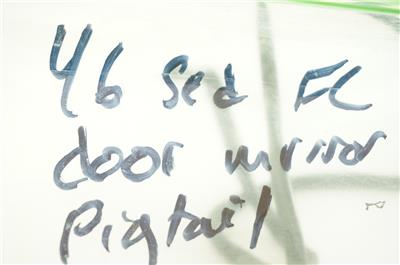 46 Sed FL
door mirror
Pigtail